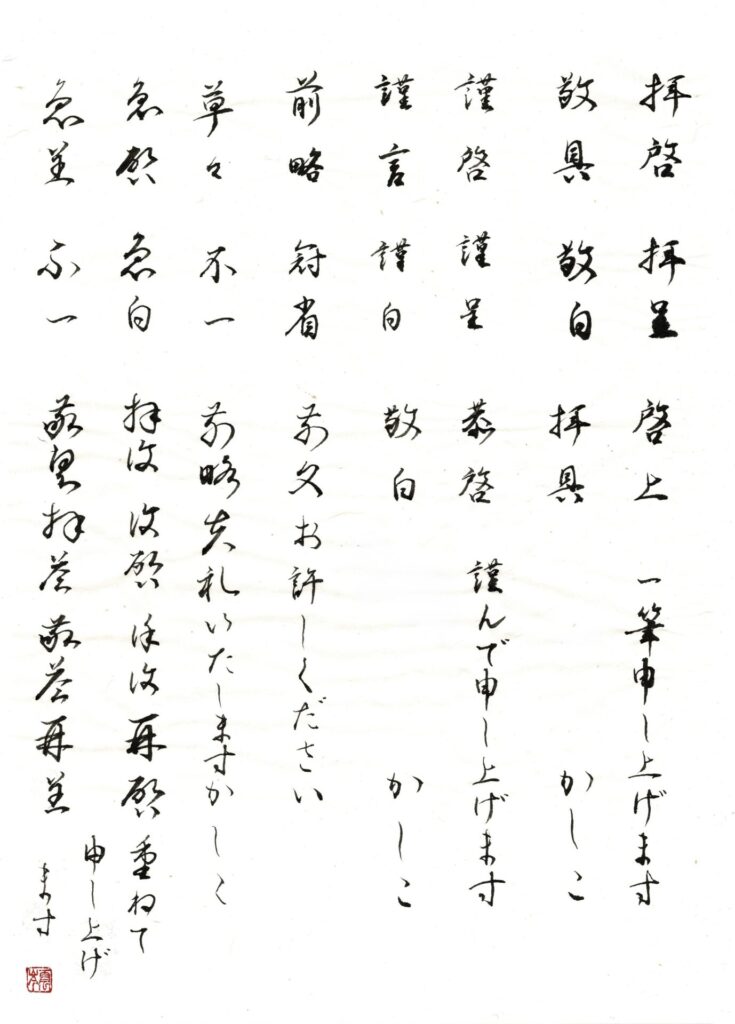 拝啓 拝呈 啓上 一筆申し上げます
敬具 敬白 拝具 かしこ
謹啓 謹呈 恭啓 謹んで申し上げます
謹言 謹白 敬白 かしこ
前略 冠省 前文お許しください
草々 不一 前略失礼いたします かしこ
急啓 急白 拝復 復啓 復 再啓 重ねて
申し上げ
ます
急呈 不一 敬具 拝答 敬答 再呈